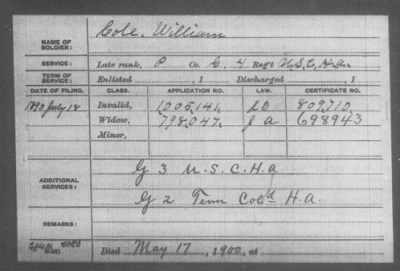 Cole, William
NAME OF SOLDIER:
SERVICE: Late rank, P Co. G, 4 Reg't U.S.C.H.A.
TERM OF SERVICE: Enlisted , 1 Discharged , 1
DATE OF FILING. CLASS. APPLICATION NO. LAW. CERTIFICATE NO.
1890 July 18 Invalid, 1,005,141 809,710
Widow, 798,047 698943
Minor,
G 3 U.S.C.H.A.
ADDITIONAL SERVICES:
G 2 Tenn Col'd H.A.
REMARKS:
Died May 17, 1900, at